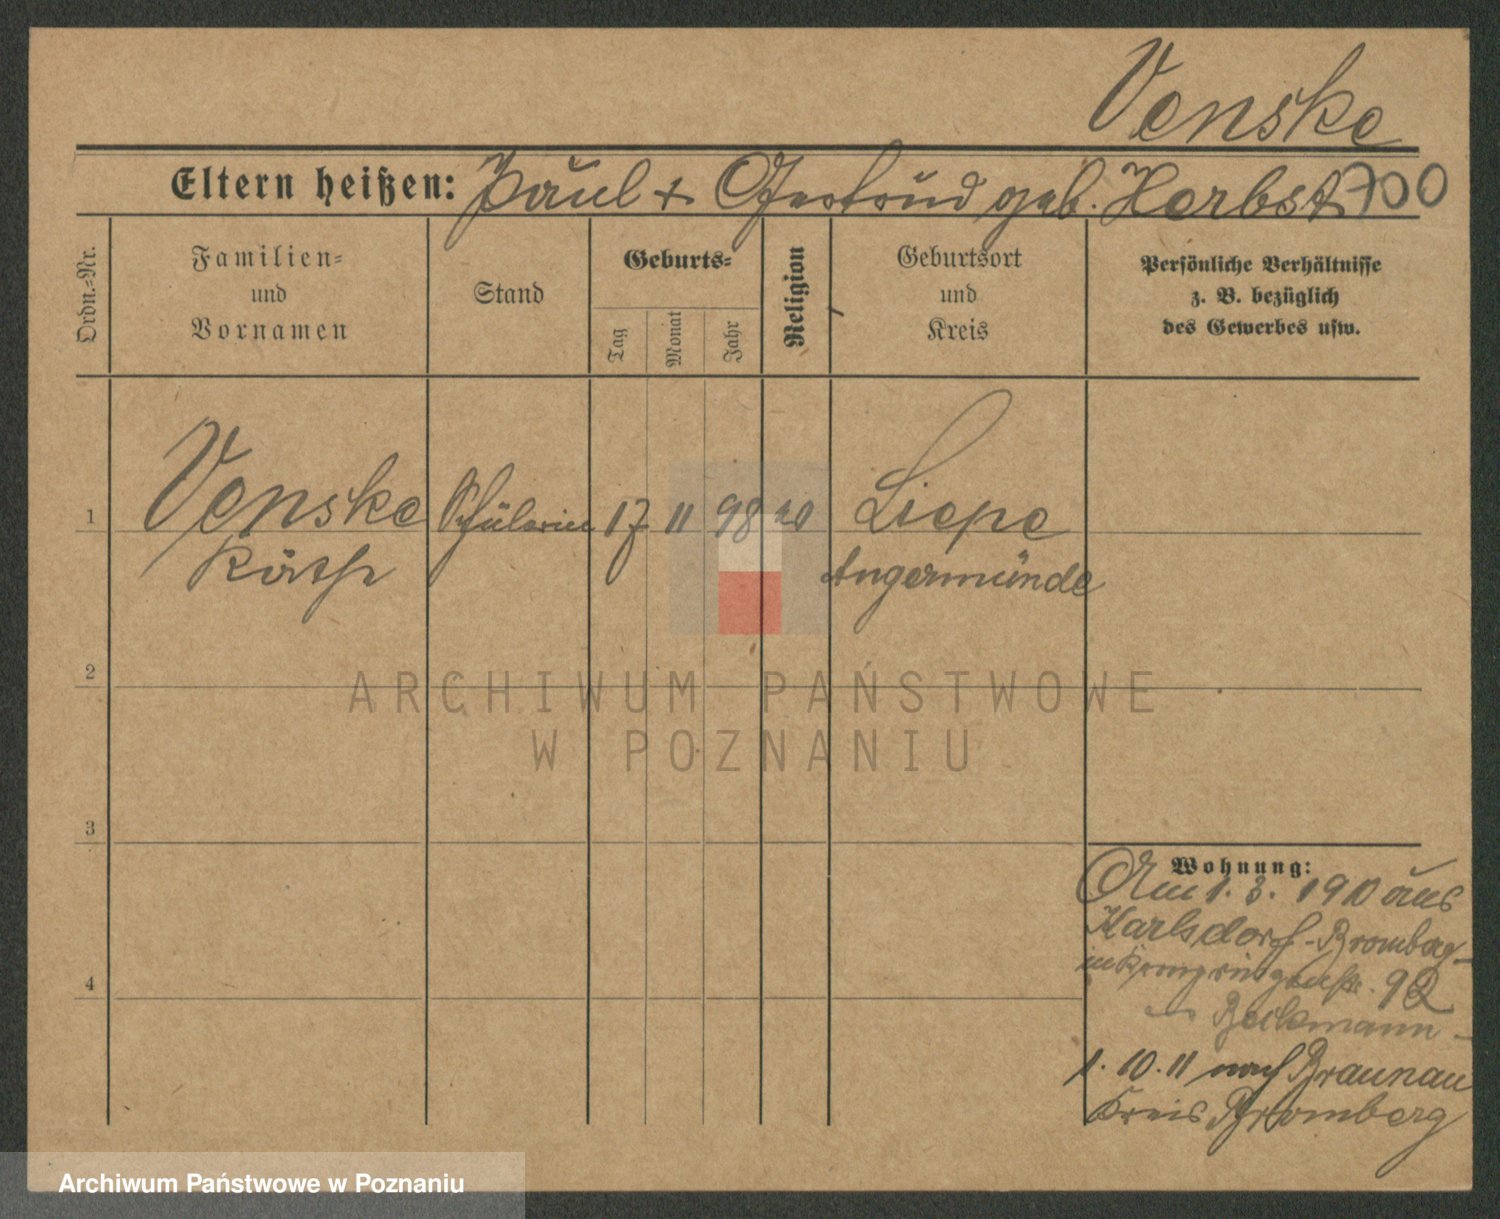 Venske
Eltern heißen: Paul + Gertrud geb. Herbst 700
Ordn.-Nr.
Familien-
und
Vornamen
Stand
Geburts-
Tag
Monat
Jahr
Religion
Geburtsort
und
Kreis
Persönliche Verhältnisse
z. B. bezüglich
des Gewerbes usw.
1
Venske Schülerin 17 11 98 Liepe
Käthe Angermünde
2
3
4
Wohnung:
Am 1. 3. 1910 aus
Karlsdorf-Bromberg
92
1. 10. 11 nach Braunau
Kreis Bromberg
ARCHIWUM PAŃSTWOWE
W POZNANIU
Archiwum Państwowe w Poznaniu